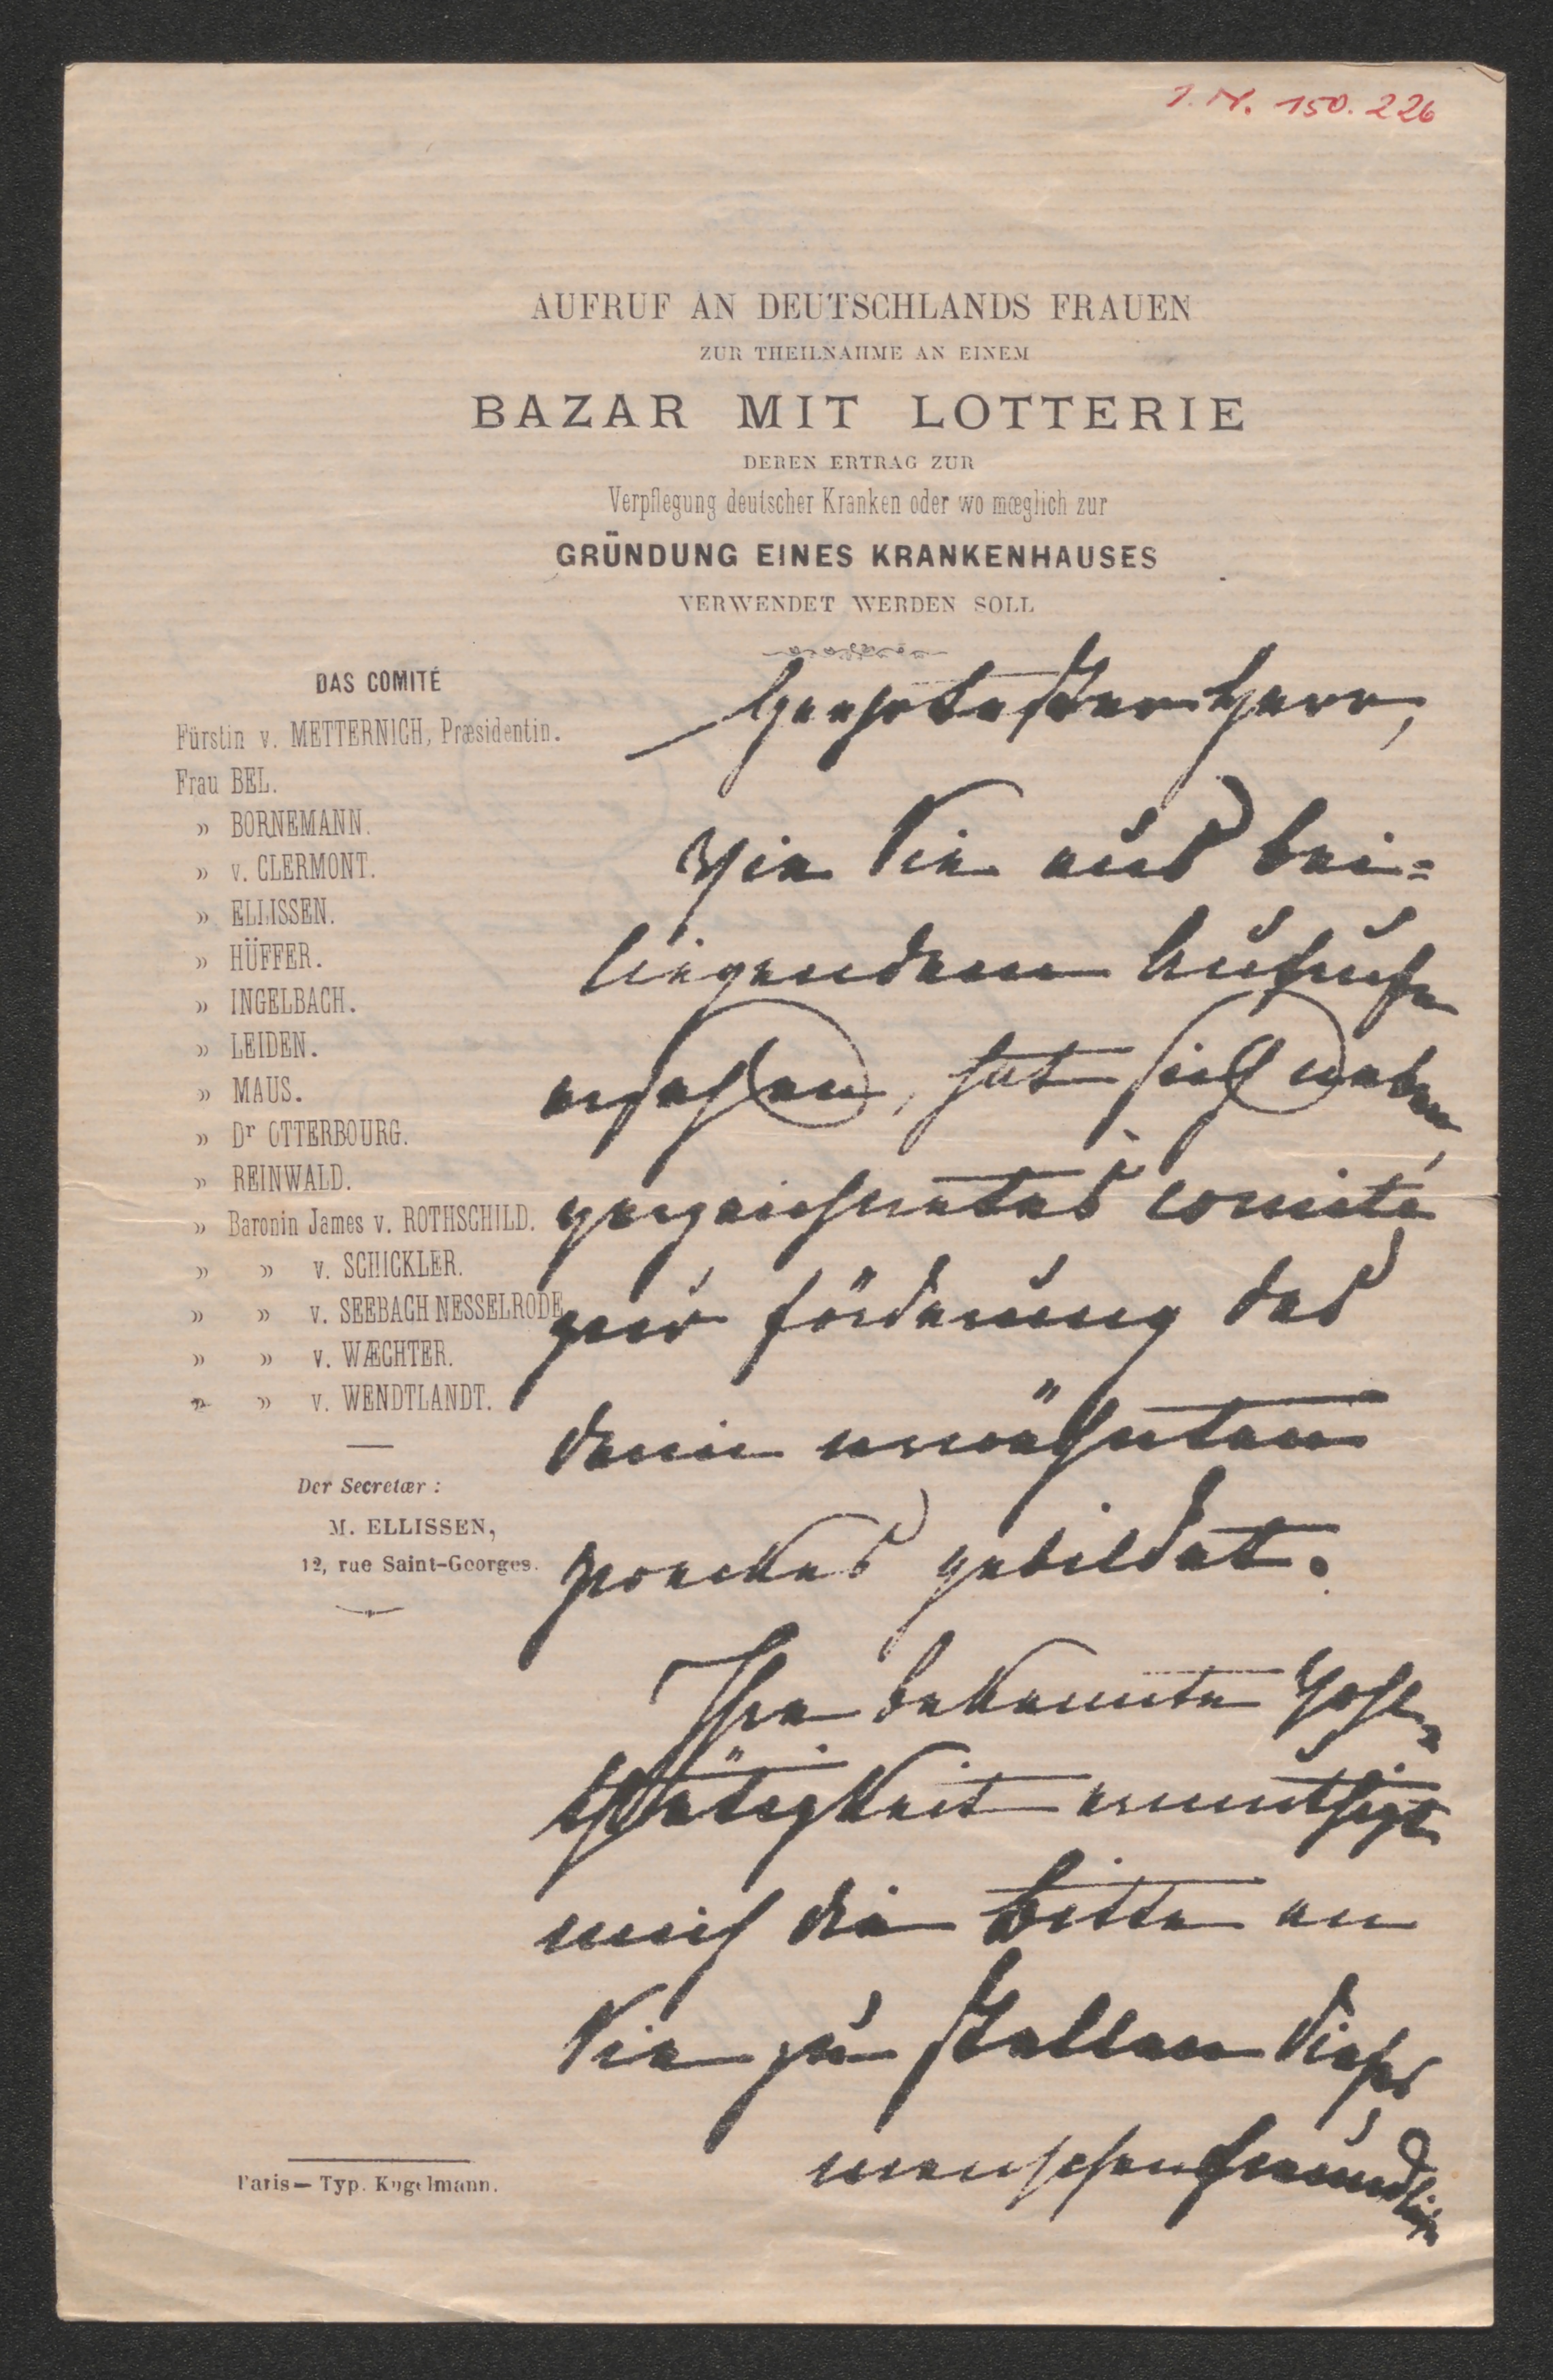 I. N. 150.226
AUFRUF AN DEUTSCHLANDS FRAUEN
ZUR THEILNAHME AN EINEM
BAZAR MIT LOTTERIE
DEREN ERTRAG ZUR
Verpflegung deutscher Kranken oder wo mœglich zur
GRÜNDUNG EINES KRANKENHAUSES
VERWENDET WERDEN SOLL
DAS COMITÉ
Fürstin v. METTERNICH, Præsidentin.
Frau BEL.
» BORNEMANN.
» v. CLERMONT.
» ELLISSEN.
» HÜFFER.
» INGELBACH.
» LEIDEN.
» MAUS.
» Dr OTTERBOURG.
» REINWALD.
» Baronin James v. ROTHSCHILD.
» » v. SCHICKLER.
» » v. SEEBACH NESSELRODE
» » v. WÆCHTER.
» » v. WENDTLANDT.
Der Secretær :
M. ELLISSEN,
12, rue Saint-Georges.
Paris — Typ. Kugelmann.
Geehrtester Herr,
Wie Sie aus bei=
liegendem Aufrufe
ersehen, hat sich neben
verzeichnetes comité
zur förderung des
darin erwähnten
zweckes gebildet.
Ihre bekannte Wohl
thätigkeit ermuthigt
mich die bitte an
Sie zu stellen dieses
menschenfreundliche